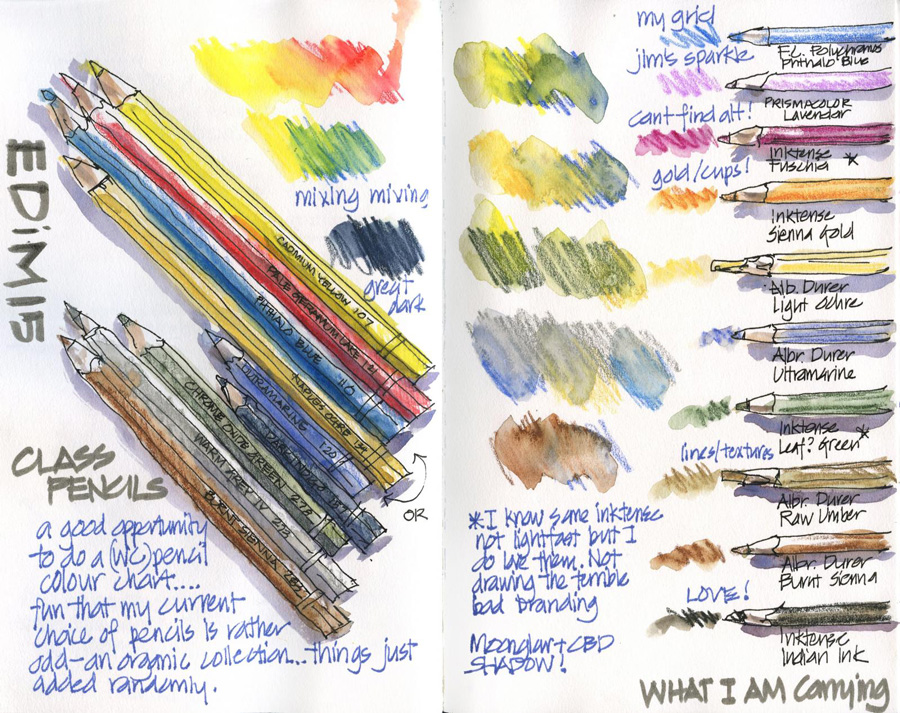 EDiM15
mixing mixing
great
dark
CADMIUM YELLOW 107
PALE GERANIUM LAKE 121
PHTHALO BLUE 110
NAPLES OCHRE
ULTRAMARINE 120
DARK INDIGO 157
CHROME OXIDE GREEN 278
WARM GREY IV 273
BURNT SIENNA 283
OR
CLASS
PENCILS
a good opportunity
to do a (WC) pencil
colour chart....
fun that my current
choice of pencils is rather
odd-an organic collection...things just
added randomly.
my grid
F.C. Polychromos
Phthalo Blue
jim's sparkle
PRISMACOLOR
Lavendar
cant find alt!
Inktense
Fuschia *
gold/cups!
Inktense
Sienna Gold
Alb. Durer
Light Ochre
Albr. Durer
Ultramarine
Inktense
Leaf? Green *
lines/textures
Albr. Durer
Raw Umber
Albr. Durer
Burnt Sienna
LOVE!
Inktense
Indian Ink
*I know some inktense
not lightfast but I
do love them. Not
drawing the terrible
bad branding
Moonglow + CBD
SHADOW!
WHAT I AM Carrying